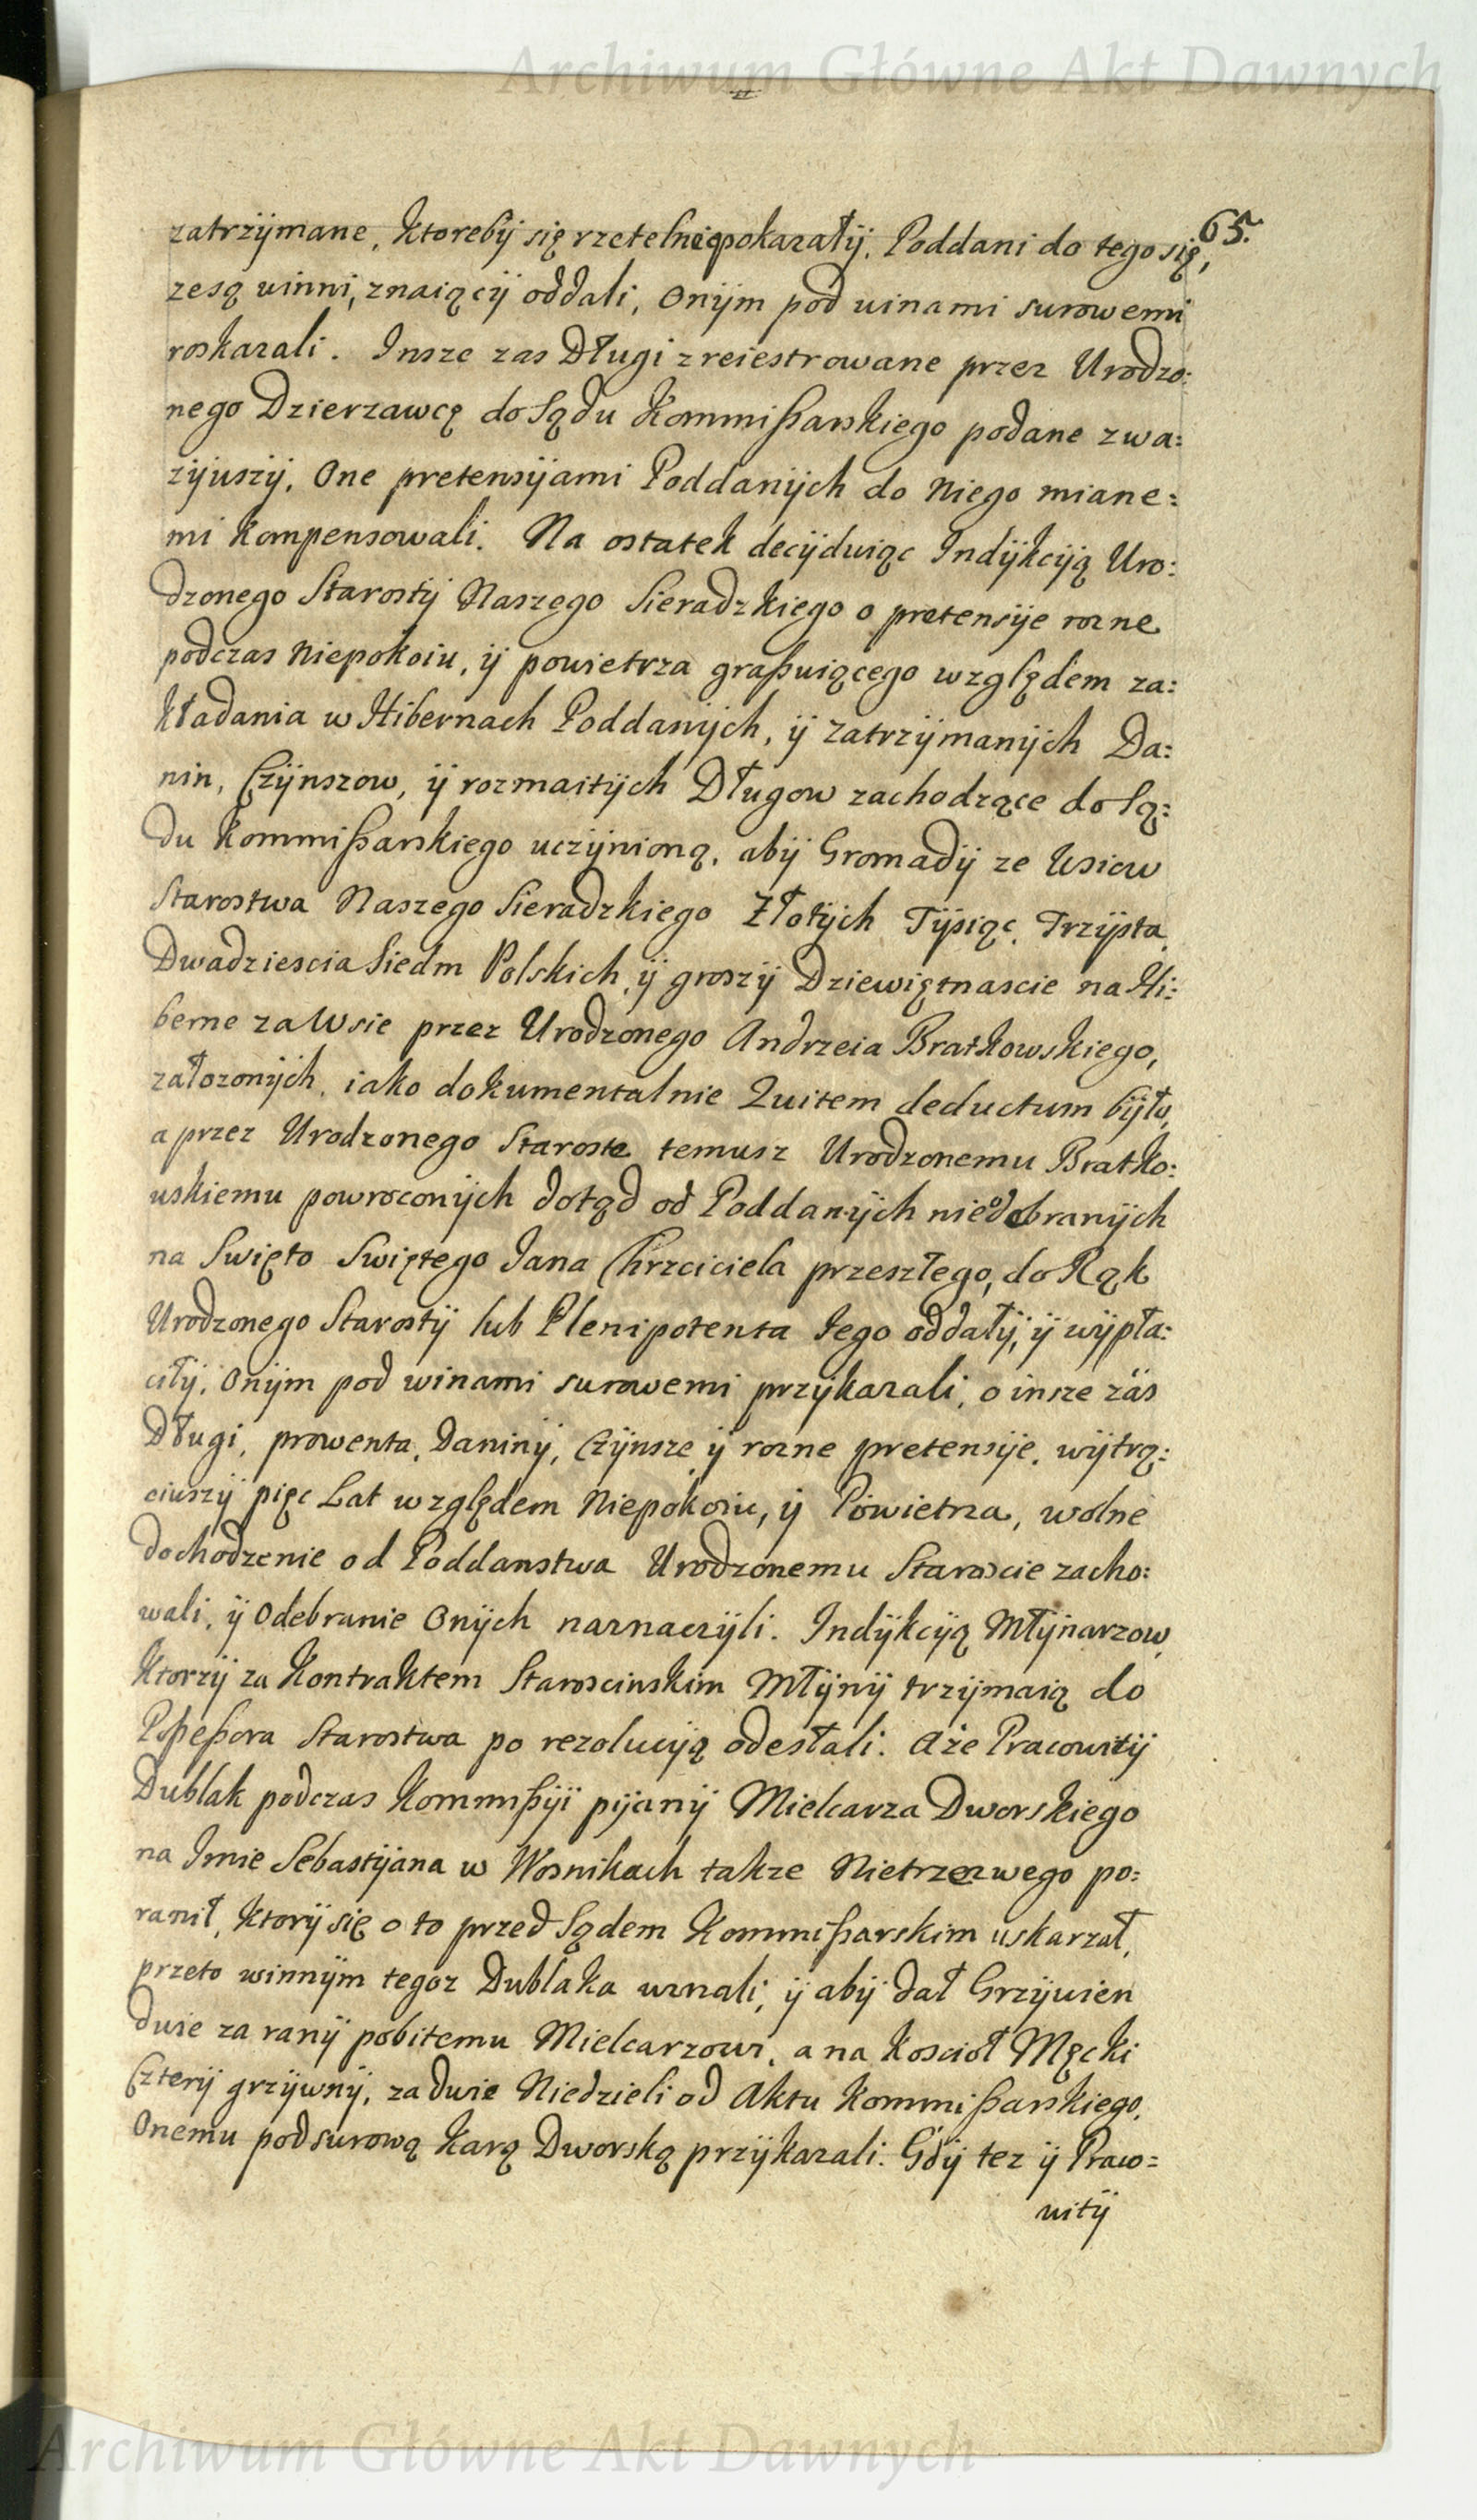 Archiwum Główne Akt Dawnych
65.
zatrzÿmane, ktorebÿ się rzetelnie pokazałÿ, Poddani do tego się,
ze są winni, znaiącÿ oddali, Onÿm pod winami surowemi
roskazali. Insze zas Długi zreiestrowane przez Urodzo:
nego Dzierzawcę do Sądu Kommißarskiego podane zwa:
zÿwszÿ, One pretensÿami Poddanÿch do Niego miane:
mi kompensowali. Na ostatek decÿduiąc Indÿkcÿą Uro:
dzonego Starostÿ Naszego Sieradzkiego o pretensÿe rozne
podczas Niepokoiu, ÿ powietrza graßuiącego względem za:
kładania w Hibernach Poddanÿch, ÿ zatrzÿmanÿch Da:
nin, Czÿnszow, ÿ rozmaitÿch Długow zachodzące do Są:
du Kommißarskiego uczÿnioną, abÿ Gromadÿ ze Wsiow
Starostwa Naszego Sieradzkiego Złotÿch Tÿsiąc, Trzÿsta
Dwadziescia Siedm Polskich, ÿ groszÿ Dziewiętnascie na Hi:
berne za Wsie przez Urodzonego Andrzeia Bratkowskiego,
załozonÿch, iako dokumentalnie Quitem deductum bÿło,
a przez Urodzonego Staroste temusz Urodzonemu Bratko:
wskiemu powroconÿch dotąd od Poddanÿch nieodebranÿch
na Swięto Swiętego Jana Chrzciciela przeszłego, do Rąk
Urodzonego Starostÿ lub Plenipotenta Jego oddałÿ, ÿ wÿpła:
ciłÿ, Onÿm pod winami surowemi przÿkazali, o insze zäs
Długi, prowenta, Daninÿ, Czÿnsze, ÿ rozne pretensÿe, wÿtrą:
ciwszÿ pięc Lat względem Niepokoiu, ÿ Powietrza, wolne
dochodzenie od Poddanstwa Urodzonemu Staroscie zacho:
wali, ÿ Odebranie Onÿch naznaczÿli. Indÿkcÿą Młÿnarzow,
Ktorzÿ za Kontraktem Staroscinskim Młÿnÿ trzÿmaią do
Poßeßora Starostwa po rezolucÿą odesłali. Aże Pracowitÿ
Dublak podczas Kommißÿi pÿanÿ Mielcarza Dworskiego
na Imie Sebastÿana w Wosnikach takze Nietrzezwego po:
ranił, ktorÿ się o to przed Sądem Kommißarskim uskarzał,
przeto winnÿm tegoz Dublaka uznali, ÿ abÿ dał Grzÿwien
dwie za ranÿ pobitemu Mielcarzowi, a na Kosciół Męcki
Czterÿ grzÿwnÿ, za dwie Niedzieli od Aktu Kommißarskiego,
Onemu pod surową Karą Dworską przÿkazali. Gdÿ tez ÿ Praco=
witÿ
Archiwum Główne Akt Dawnych